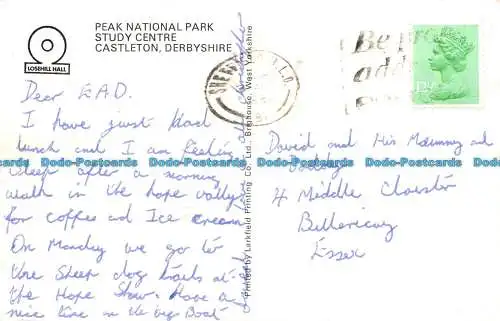 PEAK NATIONAL PARK
STUDY CENTRE
CASTLETON, DERBYSHIRE
LOSEHILL HALL
Dear E.A.D.
I have just had
lunch and I am feeling
asleep after a morning
walk in the hope valley
for coffee and Ice cream
On Monday we go to
the sheep dog trails at
the Hope Show. Have a
nice time on the big Boat
Printed by Larkfield Printing Co. Ltd. Brighouse, West Yorkshire
SHEFFIELD
Be
add
12½P
David and His Mummy and
Daddy
4 Middle
Billericay
Essex
Db-Postcards Db-Postcards Db-Postcards Db-Postcards